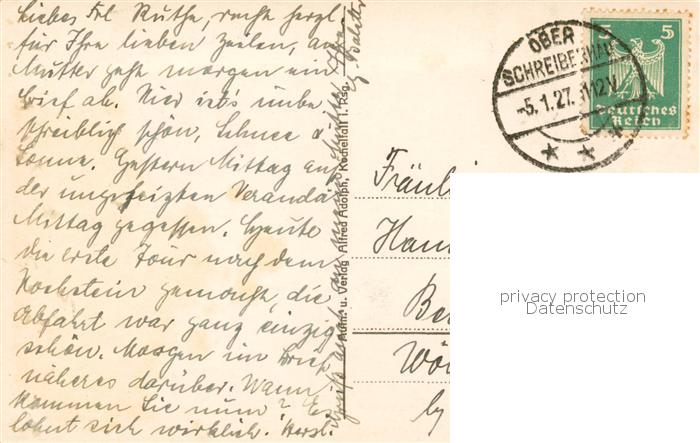 Liebes Frl Ruthe, recht herzl.
für Ihre lieben Zeilen, an
Mutter geht morgen ein
Brief ab. Hier ist's unbe
schreiblich schön, Schnee u
Sonne. Gestern Mittag auf
der ungeheizten Veranda
Mittag gegessen. Heute
die erste Tour nach dem
Hochstein gemacht, die
Abfahrt war ganz einzig
schön. Morgen im Brief
näheres darüber. Wann
kommen Sie nun? Es
lohnt sich wirklich. Herzl.
Gruß auch an
Aufn. u. Verlag Alfred Adolph, Kochelfall i. Rsg.
OBER
SCHREIBERHAU
-5.1.27. 11-12V.
5 5
Deutsches
Reich
Fräulei
Han
Be
Wör
by
privacy protection
Datenschutz